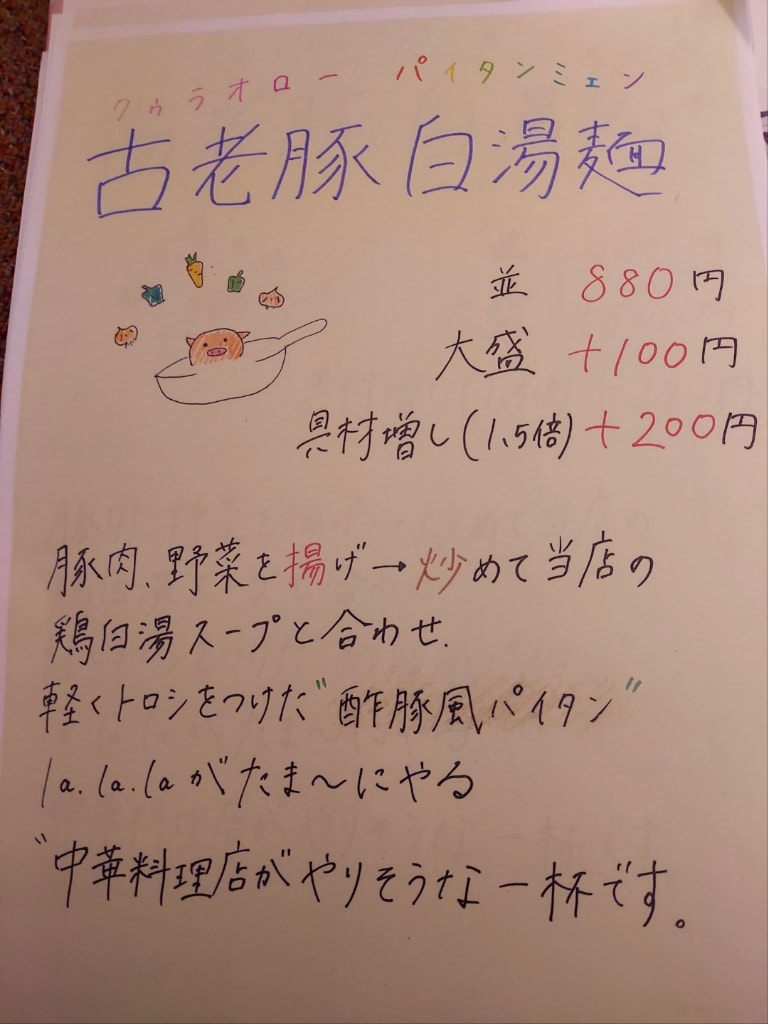 クゥラオロー パイタンミェン
古老豚白湯麺
並 880円
大盛 +100円
具材増し(1.5倍)+200円
豚肉、野菜を揚げ→炒めて当店の
鶏白湯スープと合わせ、
軽くトロシをつけた"酢豚風パイタン"
la.la.laがたま〜にやる
"中華料理店がやりそうな一杯です。